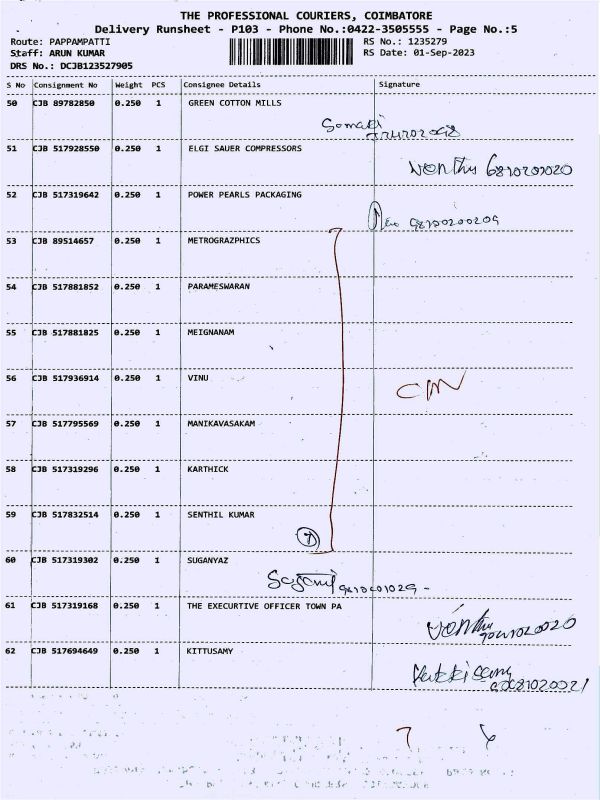 THE PROFESSIONAL COURIERS, COIMBATORE
Delivery Runsheet - P103 - Phone No.:0422-3505555 - Page No.:5
Route: PAPPAMPATTI RS No.: 1235279
Staff: ARUN KUMAR RS Date: 01-Sep-2023
DRS No.: DCJB123527905
S No Consignment No Weight PCS Consignee Details Signature
50 CJB 89782850 0.250 1 GREEN COTTON MILLS
51 CJB 517928550 0.250 1 ELGI SAUER COMPRESSORS
52 CJB 517319642 0.250 1 POWER PEARLS PACKAGING
53 CJB 89514657 0.250 1 METROGRAZPHICS
54 CJB 517881852 0.250 1 PARAMESWARAN
55 CJB 517881825 0.250 1 MEIGNANAM
56 CJB 517936914 0.250 1 VINU
57 CJB 517795569 0.250 1 MANIKAVASAKAM
58 CJB 517319296 0.250 1 KARTHICK
59 CJB 517832514 0.250 1 SENTHIL KUMAR
7
60 CJB 517319302 0.250 1 SUGANYAZ
61 CJB 517319168 0.250 1 THE EXECURTIVE OFFICER TOWN PA
62 CJB 517694649 0.250 1 KITTUSAMY
7